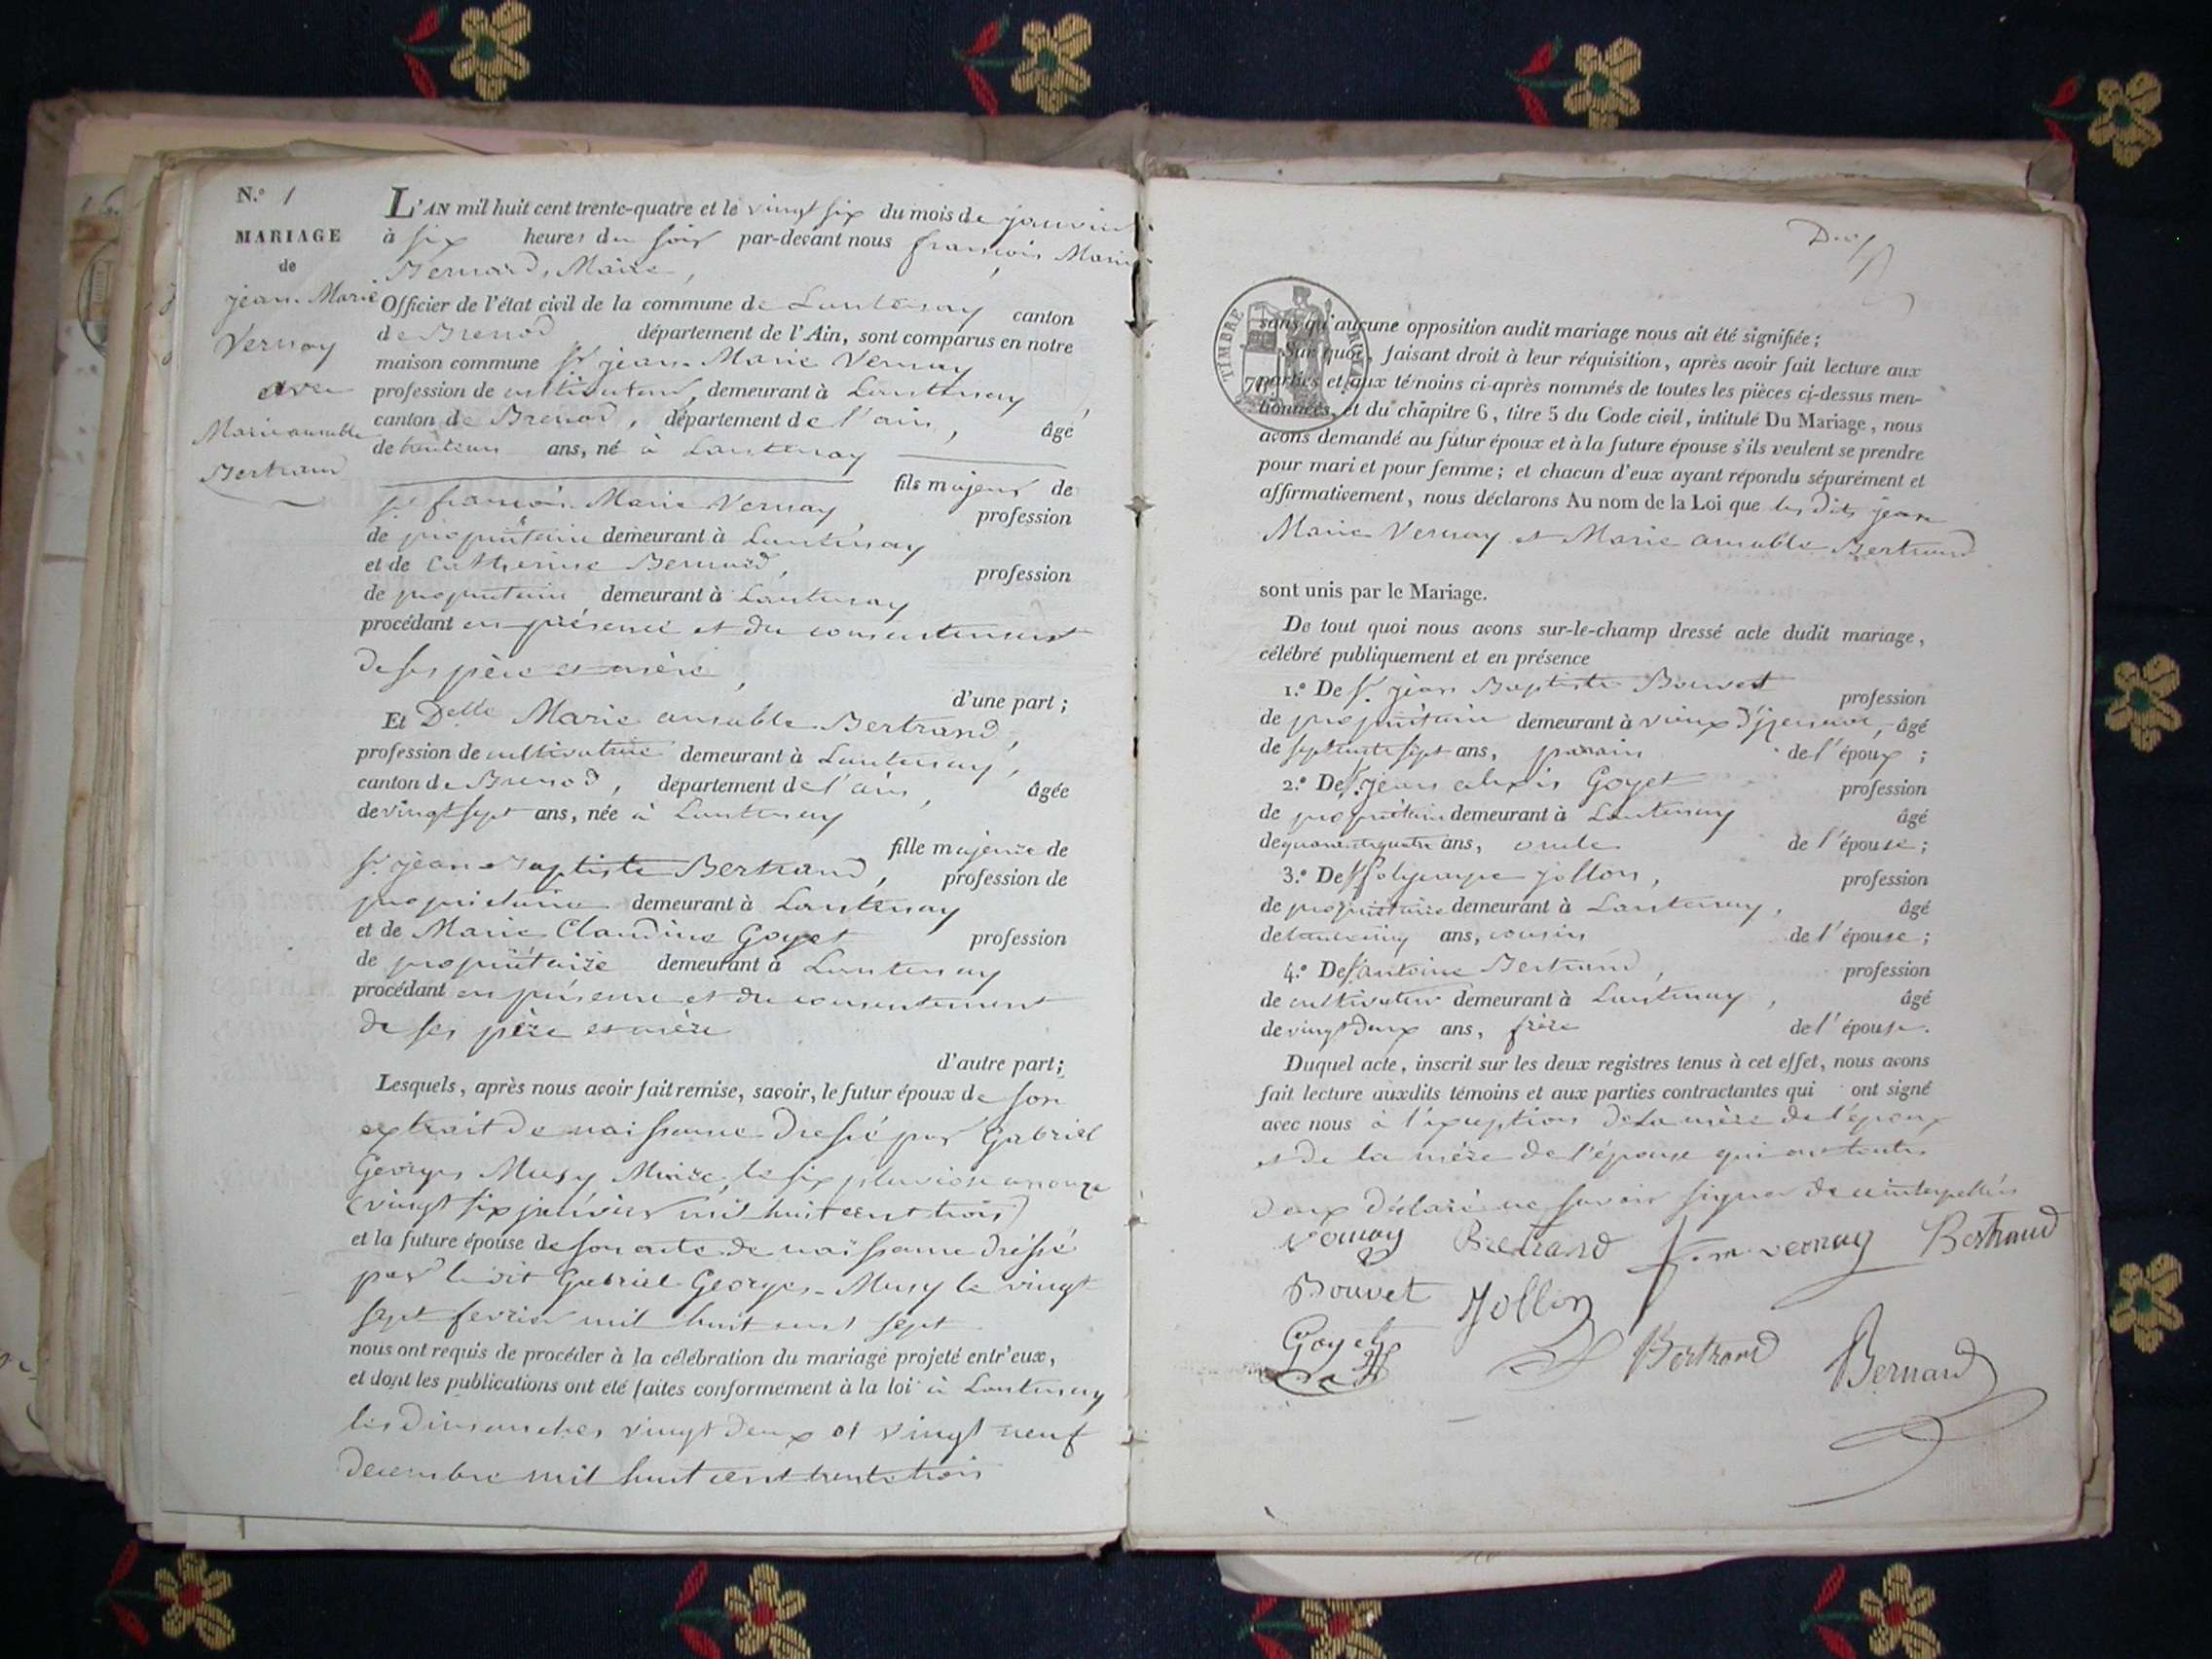 N.o 1
MARIAGE
de
jean Marie
Vernay
avec
Marie amable
Bertrand
L'AN mil huit cent trente-quatre et le vingt six du mois de janvier
à six heures du soir par-devant nous françois Marie
Bernard, Maire,
Officier de l'état civil de la commune de Lantenay canton
de Brenod département de l'Ain, sont comparus en notre
maison commune Sr jean Marie Vernay
profession de cultivateur, demeurant à Lantenay
canton de Brenod, département de l'ain, âgé
de trente un ans, né à Lantenay
fils majeur de
Sr françois Marie Vernay profession
de propriétaire demeurant à Lantenay
et de Catherine Bernard, profession
de propriétaire demeurant à Lantenay
procédant en présence et du consentement
de ses père et mère,
d'une part;
Et Delle Marie amable Bertrand,
profession de cultivatrice demeurant à Lantenay,
canton de Brenod, département de l'ain, âgée
de vingt sept ans, née à Lantenay
fille majeure de
Sr jean Baptiste Bertrand, profession de
propriétaire demeurant à Lantenay
et de Marie Claudine Goyet profession
de propriétaire demeurant à Lantenay
procédant en présence et du consentement
de ses père et mère
d'autre part;
Lesquels, après nous avoir fait remise, savoir, le futur époux de son
extrait de naissance dressé par Gabriel
Georges Musy Maire, le six pluviose an onze
(vingt six janvier mil huit cent trois)
et la future épouse de son acte de naissance dressé
par le dit Gabriel Georges Musy le vingt
sept fevrier mil huit cent sept
nous ont requis de procéder à la célébration du mariage projeté entr'eux,
et dont les publications ont été faites conformément à la loi à Lantenay
les dimanches vingt deux et vingt neuf
decembre mil huit cent trente trois
TIMBRE ROYAL
sans qu'aucune opposition audit mariage nous ait été signifiée;
Sur quoi, faisant droit à leur réquisition, après avoir fait lecture aux
parties et aux témoins ci-après nommés de toutes les pièces ci-dessus men-
tionnées, et du chapitre 6, titre 5 du Code civil, intitulé Du Mariage, nous
avons demandé au futur époux et à la future épouse s'ils veulent se prendre
pour mari et pour femme; et chacun d'eux ayant répondu séparément et
affirmativement, nous déclarons Au nom de la Loi que les dits jean
Marie Vernay et Marie amable Bertrand
sont unis par le Mariage.
De tout quoi nous avons sur-le-champ dressé acte dudit mariage,
célébré publiquement et en présence
1.o De Sr jean Baptiste Bouvet profession
de propriétaire demeurant à vieux d'izenave, âgé
de septante sept ans, parain de l'époux;
2.o De Sr jean alexis Goyet profession
de propriétaire demeurant à Lantenay âgé
de quarante quatre ans, oncle de l'épouse;
3.o De Sr polycarpe jollon, profession
de propriétaire demeurant à Lantenay, âgé
de trente cinq ans, cousin de l'épouse;
4.o De Sr antoine Bertrand, profession
de cultivateur demeurant à Lantenay, âgé
de vingt deux ans, frère de l'épouse.
Duquel acte, inscrit sur les deux registres tenus à cet effet, nous avons
fait lecture auxdits témoins et aux parties contractantes qui ont signé
avec nous à l'exception de la mère de l'époux
et de la mère de l'épouse qui ont toutes
deux déclaré ne savoir signer de ce interpellés
Vernay Bertrand f. m. vernay Bertrand
Bouvet Jollon
Goyet Bertrand Bernard